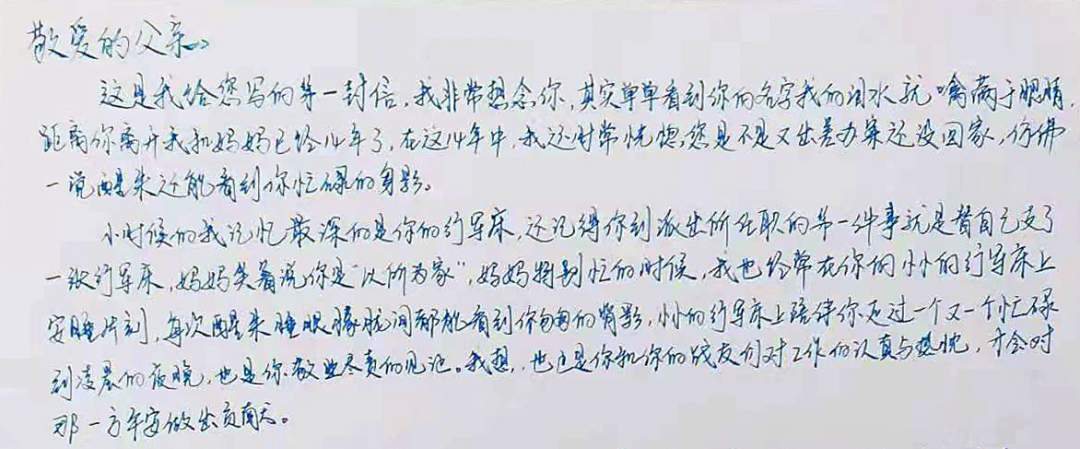 敬爱的父亲:
这是我给您写的第一封信,我非常想念你,其实单单看到你的名字我的泪水就噙满于眼睛,
距离你离开我和妈妈已经14年了,在这14年中,我还时常恍惚,您是不是又出差办案还没回家,仿佛
一觉醒来还能看到你忙碌的身影。
小时候的我记忆最深的是你的行军床,还记得你到派出所任职的第一件事就是替自己支了
一张行军床,妈妈笑着说你是“以所为家”,妈妈特别忙的时候,我也经常在你的小小的行军床上
安睡片刻,每次醒来睡眼朦胧间都能看到你匆匆的背影,小小的行军床上陪伴你走过一个又一个忙碌
到凌晨的夜晚,也是你敬业尽责的见证。我想,也正是你和你的战友们对工作的认真与热忱,才会对
那一方平安做出贡献。